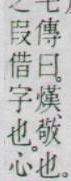 毛傳曰。熯、敬也。
之叚借字也。心